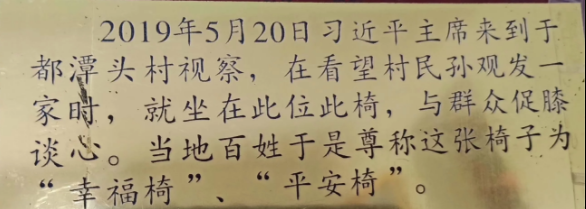 2019年5月20日习近平主席来到于
都潭头村视察，在看望村民孙观发一
家时，就坐在此位此椅，与群众促膝
谈心。当地百姓于是尊称这张椅子为
“幸福椅”、“平安椅”。